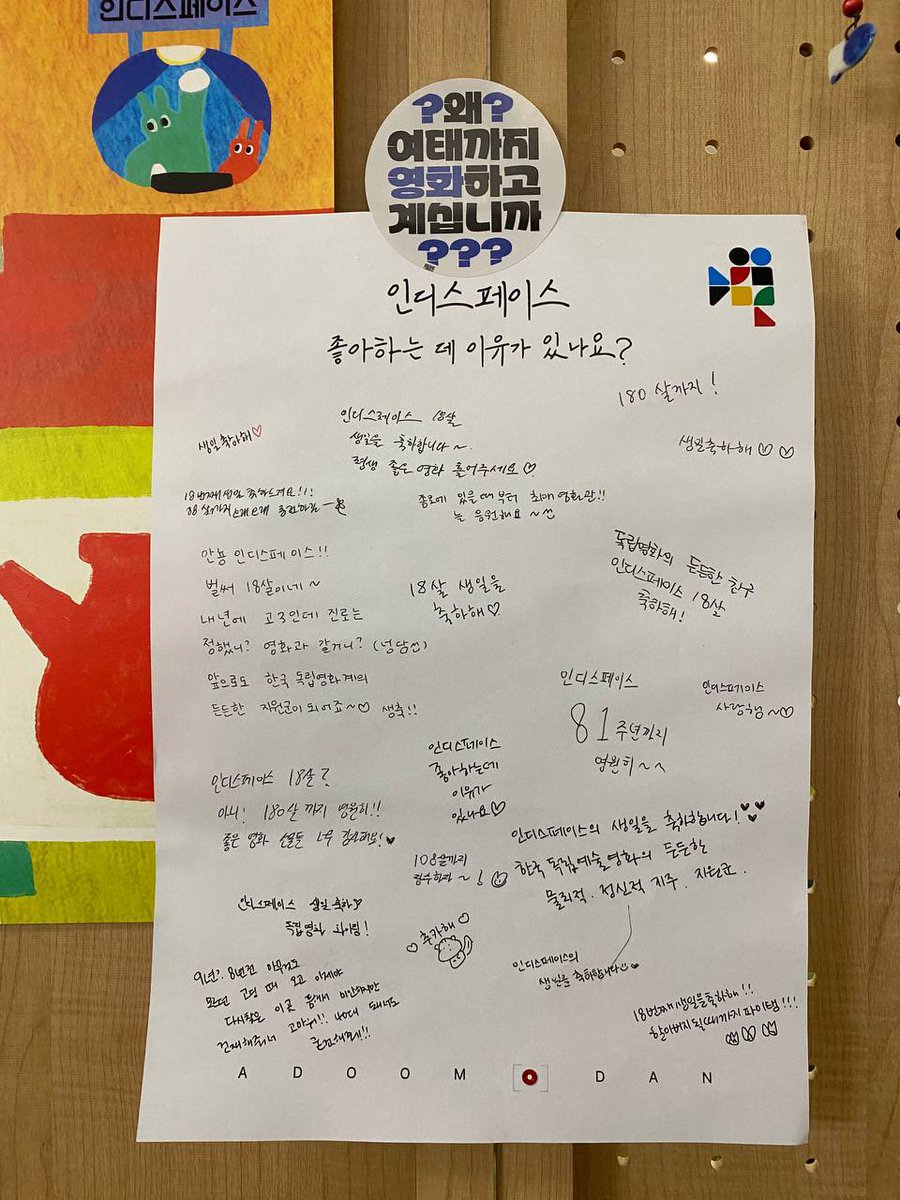 인디스페이스
?왜?
여태까지
영화하고
계십니까
???
인디스페이스
좋아하는 데 이유가 있나요?
180 살까지!
생일축하해♡
인디스페이스 18살
생일을 축하합니다~
평생 좋은 영화 틀어주세요♡
생일축하해♡♡
18번째 생일
종로에 있을때부터 최애 영화관!!
늘 응원해요~
안뇽 인디스페이스!!
벌써 18살이네~
내년에 고3인데 진로는
정했니? 영화과 갈거니? (넝담ㅎ)
앞으로도 한국 독립영화계의
든든한 지원군이 되어죠~♡ 생축!!
18살 생일을
축하해♡
독립영화의 든든한 친구
인디스페이스 18살
축하해!
인디스페이스
81주년까지
영원히~^
인디스페이스
사랑해~♡
인디스페이스
좋아하는데
이유가
있나요♡
인디스페이스 18살?
아니! 180살 까지 영원히!!
좋은 영화 너무 감사해요!♥
108살까지
인디스페이스의 생일을 축하합니다!♥♥♥
한국 독립예술영화의 든든한
물리적·정신적 지주·지원군.
인디스페이스 생일 축하
독립영화 화이팅!
♡추카해♡
인디스페이스의
생일을 축하합니다♥
9년? 8년전
다시찾은 이곳
18번째 생일을축하해!!
할아버지 될때까지 파이탱!!!
A D O O M D A N